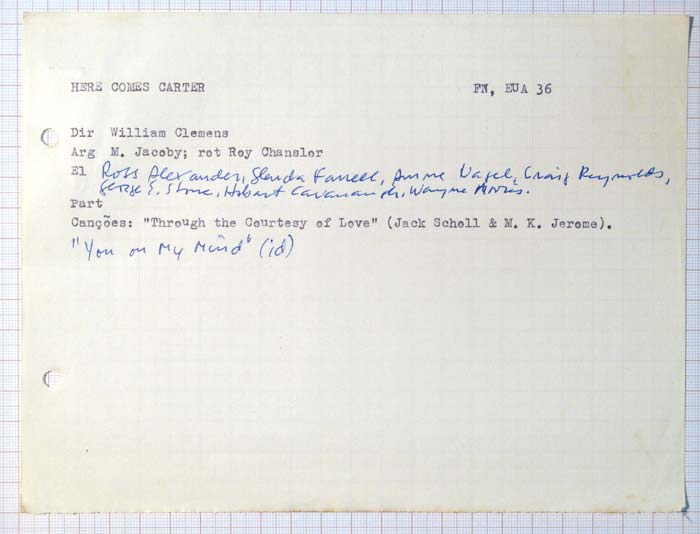 HERE COMES CARTER FN, EUA 36
Dir William Clemens
Arg M. Jacoby; rot Roy Chansler
El Ross Alexander, Glenda Farrell, Anne Nagel, Craig Reynolds,
George E. Stone, Hobart Cavanaugh, Wayne Morris.
Part
Canções: "Through the Courtesy of Love" (Jack Scholl & M. K. Jerome).
"You on My Mind" (id)